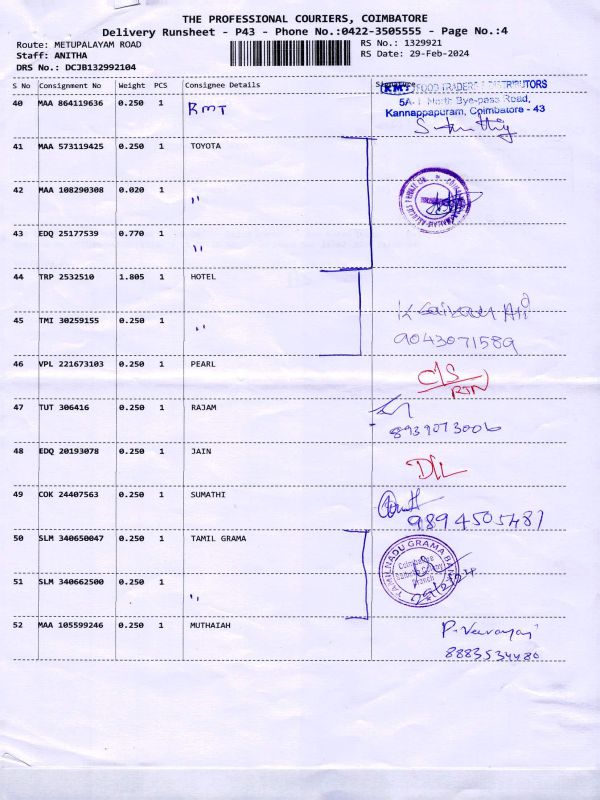 THE PROFESSIONAL COURIERS, COIMBATORE
Delivery Runsheet - P43 - Phone No.:0422-3505555 - Page No.:4
Route: METUPALAYAM ROAD
Staff: ANITHA
DRS No.: DCJB132992104
RS No.: 1329921
RS Date: 29-Feb-2024
S No Consignment No Weight PCS Consignee Details
40 MAA 864119636 0.250 1 RMT
KMT FOOD TRADERS DISTRIBUTORS
North Bye-pass Road,
Kannappapuram, Coimbatore - 43
41 MAA 573119425 0.250 1 TOYOTA
42 MAA 108290308 0.020 1 "
43 EDQ 25177539 0.770 1 "
44 TRP 2532510 1.805 1 HOTEL
45 TMI 30259155 0.250 1 "
9043071589
46 VPL 221673103 0.250 1 PEARL C/S
RTN
47 TUT 306416 0.250 1 RAJAM
8939073006
48 EDQ 20193078 0.250 1 JAIN D/L
49 COK 24407563 0.250 1 SUMATHI
9894505487
50 SLM 340650047 0.250 1 TAMIL GRAMA
TAMILNADU GRAMA BANK
Coimbatore
Branch
51 SLM 340662500 0.250 1 "
52 MAA 105599246 0.250 1 MUTHAIAH
8883534480